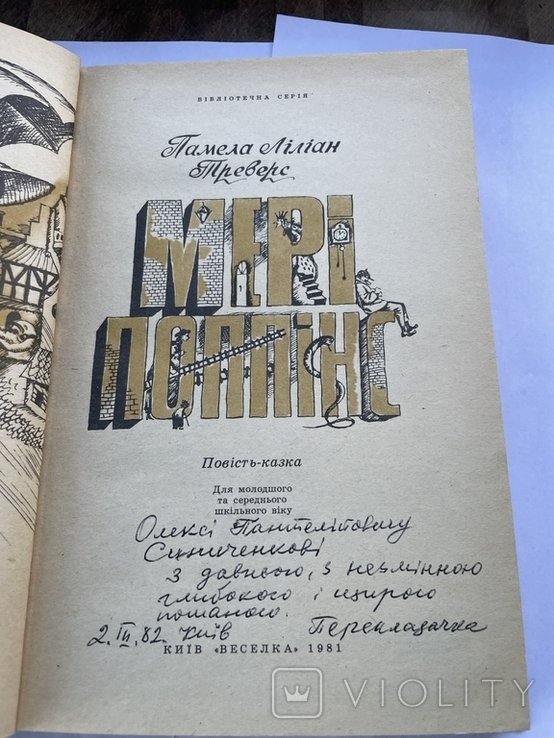 БІБЛІОТЕЧНА СЕРІЯ
Памела Ліліан
Треверс
МЕРІ
ПОППІНС
Повість-казка
Для молодшого
та середнього
шкільного віку
Олексі Пантелімоновичу
Синиченкові
З давньою, з незмінною
глибокою і щирою
пошаною.
2.III.82. Київ Перекладачка
КИЇВ «ВЕСЕЛКА» 1981
VIOLITY